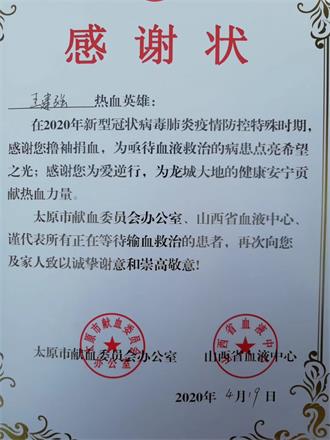 感谢状
王建强 热血英雄:
在2020年新型冠状病毒肺炎疫情防控特殊时期,
感谢您撸袖捐血，为亟待血液救治的病患点亮希望
之光；感谢您为爱逆行，为龙城大地的健康安宁贡
献热血力量。
太原市献血委员会办公室、山西省血液中心、
谨代表所有正在等待输血救治的患者，再次向您
及家人致以诚挚谢意和崇高敬意!
太原市献血委员会办公室 山西省血液中心
2020年 4月 19日